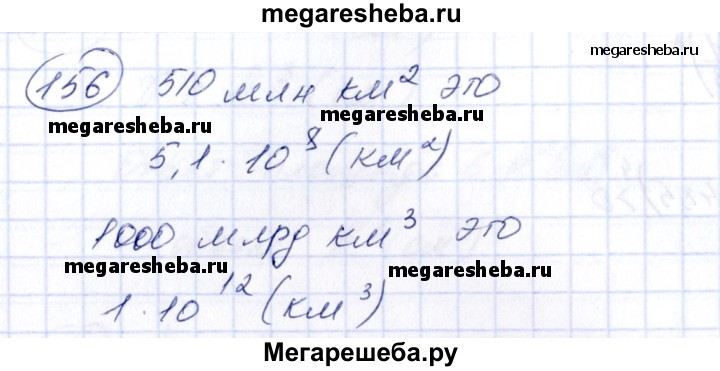 megaresheba.ru
156 510 млн км² это
megaresheba.ru
megaresheba.ru megaresheba.ru
5,1 · 10⁸ (км²)
1000 млрд км³ это
megaresheba.ru megaresheba.ru
1 · 10¹² (км³)
Мегарешеба.ру